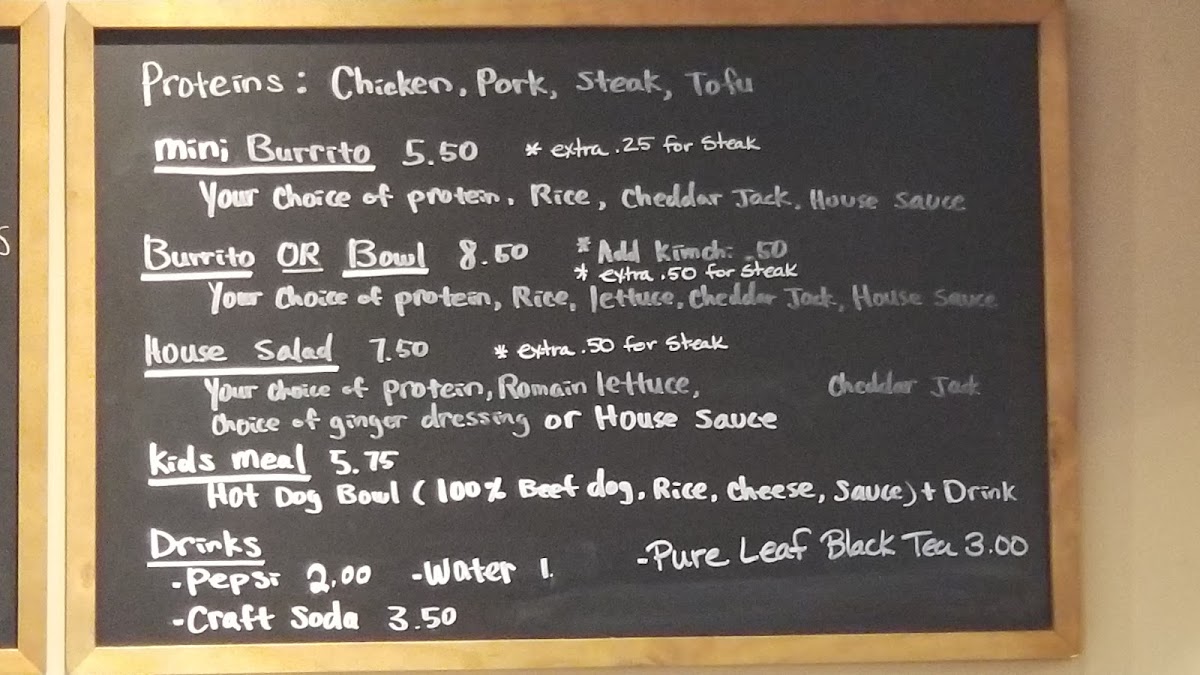 Proteins: Chicken, Pork, Steak, Tofu
mini Burrito 5.50 * extra .25 for Steak
Your Choice of protein, Rice, Cheddar Jack, House Sauce
Burrito OR Bowl 8.50 * Add Kimchi .50
* extra .50 for Steak
Your Choice of protein, Rice, lettuce, Cheddar Jack, House Sauce
House Salad 7.50 * extra .50 for Steak
Your choice of protein, Romain lettuce, Cheddar Jack
Choice of ginger dressing or House Sauce
Kids meal 5.75
Hot Dog Bowl (100% Beef dog, Rice, Cheese, Sauce) + Drink
Drinks
-Pure Leaf Black Tea 3.00
-Pepsi 2.00 -Water 1.
-Craft Soda 3.50